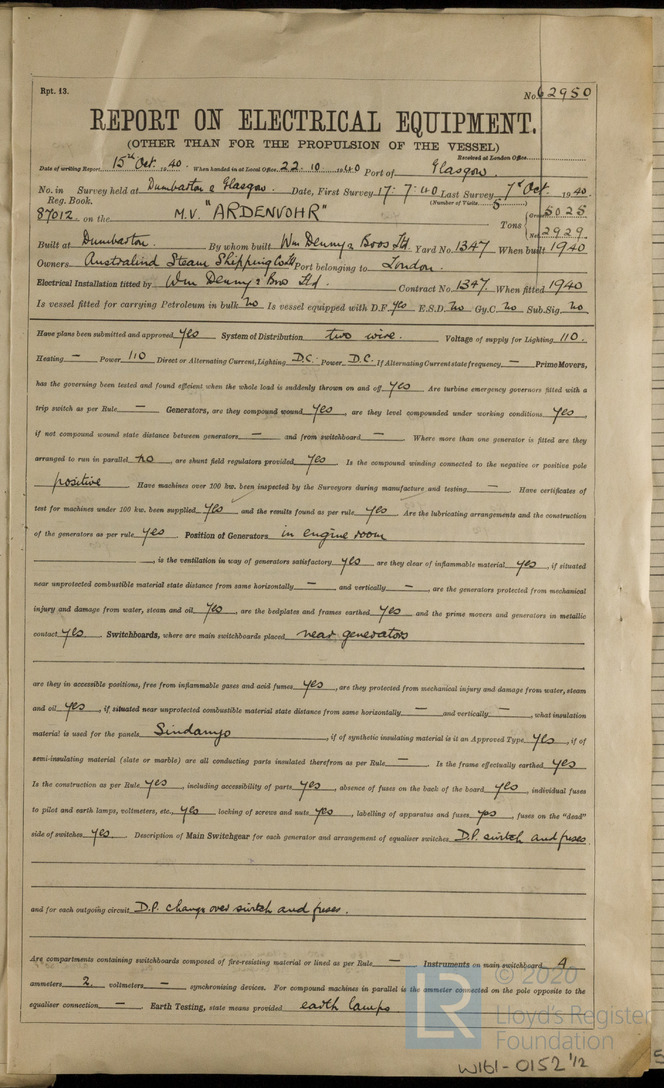 Rpt. 13.
No. 62950
REPORT ON ELECTRICAL EQUIPMENT.
(OTHER THAN FOR THE PROPULSION OF THE VESSEL)
Received at London Office
Date of writing Report 15th Oct. 1940. When handed in at Local Office 22.10.1940 Port of Glasgow.
No. in Survey held at Dumbarton & Glasgow. Date, First Survey 17.7.40 Last Survey 7th Oct. 1940.
Reg. Book. (Number of Visits 5)
87012 on the M.V. "ARDENVOHR" Tons { Gross 5025
Net 2929
Built at Dumbarton. By whom built Wm Denny & Bros Ltd. Yard No. 1347 When built 1940
Owners Australind Steam Shipping Co Ltd Port belonging to London.
Electrical Installation fitted by Wm Denny & Bros Ltd. Contract No. 1347 When fitted 1940
Is vessel fitted for carrying Petroleum in bulk no Is vessel equipped with D.F. yes E.S.D. no Gy.C. no Sub.Sig. no
Have plans been submitted and approved yes System of Distribution two wire. Voltage of supply for Lighting 110.
Heating — Power 110 Direct or Alternating Current, Lighting D.C. Power D.C. If Alternating Current state frequency — Prime Movers,
has the governing been tested and found efficient when the whole load is suddenly thrown on and off yes Are turbine emergency governors fitted with a
trip switch as per Rule — Generators, are they compound wound yes, are they level compounded under working conditions yes,
if not compound wound state distance between generators — and from switchboard — Where more than one generator is fitted are they
arranged to run in parallel no, are shunt field regulators provided yes Is the compound winding connected to the negative or positive pole
positive Have machines over 100 kw. been inspected by the Surveyors during manufacture and testing — Have certificates of
test for machines under 100 kw. been supplied yes and the results found as per rule yes Are the lubricating arrangements and the construction
of the generators as per rule yes Position of Generators in engine room
, is the ventilation in way of generators satisfactory yes are they clear of inflammable material yes, if situated
near unprotected combustible material state distance from same horizontally — and vertically —, are the generators protected from mechanical
injury and damage from water, steam and oil yes, are the bedplates and frames earthed yes and the prime movers and generators in metallic
contact yes. Switchboards, where are main switchboards placed near generators
are they in accessible positions, free from inflammable gases and acid fumes yes, are they protected from mechanical injury and damage from water, steam
and oil yes, if situated near unprotected combustible material state distance from same horizontally — and vertically —, what insulation
material is used for the panels Sindanyo, if of synthetic insulating material is it an Approved Type yes, if of
semi-insulating material (slate or marble) are all conducting parts insulated therefrom as per Rule — Is the frame effectually earthed yes
Is the construction as per Rule yes, including accessibility of parts yes, absence of fuses on the back of the board yes, individual fuses
to pilot and earth lamps, voltmeters, etc., yes locking of screws and nuts yes, labelling of apparatus and fuses yes, fuses on the "dead"
side of switches yes. Description of Main Switchgear for each generator and arrangement of equaliser switches D.P. switch and fuses
and for each outgoing circuit D.P. change over switch and fuses.
Are compartments containing switchboards composed of fire-resisting material or lined as per Rule — Instruments on main switchboard 4
ammeters 2 voltmeters — synchronising devices. For compound machines in parallel is the ammeter connected on the pole opposite to the
equaliser connection — Earth Testing, state means provided earth lamps
© 2020
LR Lloyd's Register
Foundation
W161-0152 1/2